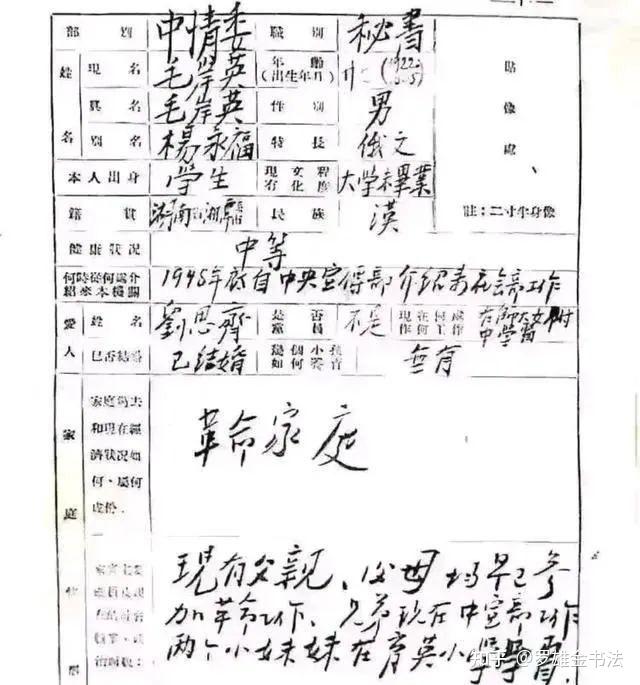 部別 中情委 職別 秘書
姓名 現名 毛岸英 年齡(出生年月) 廿七(1922.
真名 毛岸英 性別 男
別名 楊永福 特長 俄文
貼像處
本人出身 学生 現有文化程度 大学未畢業
籍貫 湖南省湘潭 民族 漢
註:二寸半身像
健康狀况 中等
何時從何處介紹來本機關 1948年 自中央宣傳部介紹来社会部工作
愛人 姓名 劉思齊 是否黨員 不是 現在何處作何工作 師大女附中学習
已否結婚 已结婚 幾個小孩如何養育 無有
家庭
家庭過去和現在經濟狀况如何、屬何成份. 革命家庭
現有父親、父母均早已参
加革命工作、兄弟現在中宣部工作
两个小妹妹在育英小学学習.
知乎 @罗雄金书法